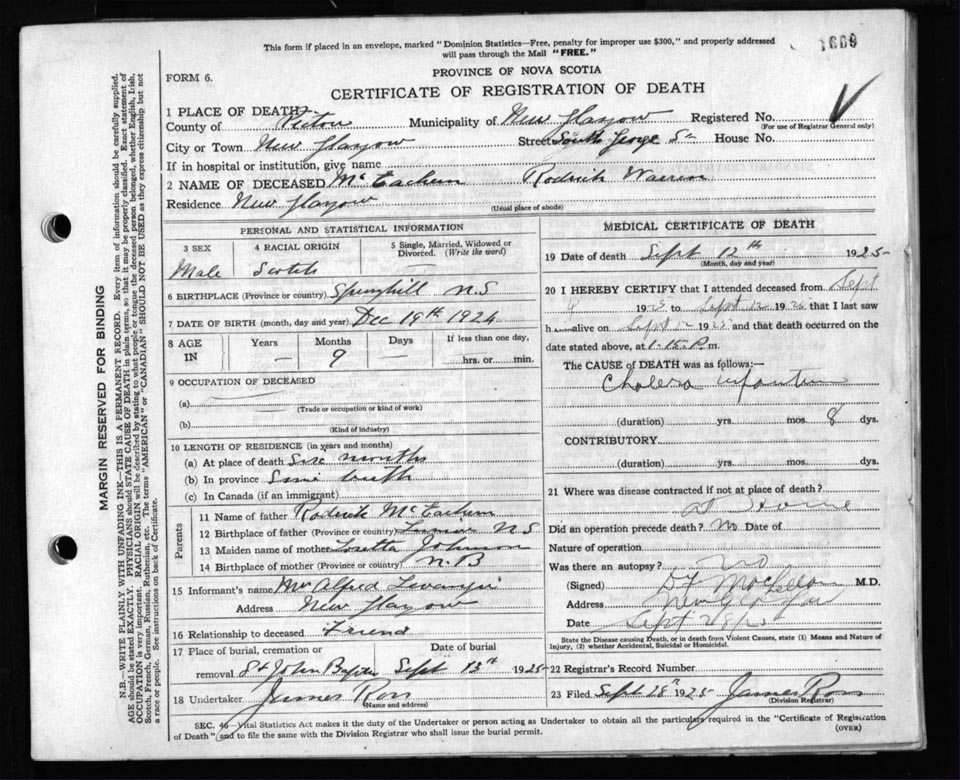 This form if placed in an envelope, marked "Dominion Statistics—Free, penalty for improper use $300," and properly addressed
will pass through the Mail "FREE."
1689
FORM 6.
PROVINCE OF NOVA SCOTIA
CERTIFICATE OF REGISTRATION OF DEATH
1 PLACE OF DEATH
County of Pictou Municipality of New Glasgow Registered No.
(For use of Registrar General only)
City or Town New Glasgow Street South George St House No.
If in hospital or institution, give name
2 NAME OF DECEASED McEachern Rodrick Warren
Residence New Glasgow
(Usual place of abode)
PERSONAL AND STATISTICAL INFORMATION
3 SEX 4 RACIAL ORIGIN 5 Single, Married, Widowed or
Divorced. (Write the word)
Male Scotch
6 BIRTHPLACE (Province or country) Springhill N.S
7 DATE OF BIRTH (month, day and year) Dec 19th 1924
8 AGE IN Years Months Days If less than one day,
— 9 — hrs. or min.
9 OCCUPATION OF DECEASED
(a)
(Trade or occupation or kind of work)
(b)
(Kind of industry)
10 LENGTH OF RESIDENCE (in years and months)
(a) At place of death Six months
(b) In province Since birth
(c) In Canada (if an immigrant)
Parents
11 Name of father Rodrick McEachern
12 Birthplace of father (Province or country) N S
13 Maiden name of mother Loretta Johnson
14 Birthplace of mother (Province or country) N.B
15 Informant's name Mr Alfred
Address New Glasgow
16 Relationship to deceased Friend
17 Place of burial, cremation or
removal St John Baptist
Date of burial
Sept 13th 1925
18 Undertaker James Ross
(Name and address)
MEDICAL CERTIFICATE OF DEATH
19 Date of death Sept 12th 1925
(Month, day and year)
20 I HEREBY CERTIFY that I attended deceased from Sept
1925 to Sept 12 1925 that I last saw
h alive on Sept 12 1925 and that death occurred on
date stated above, at 1-15 P.m.
The CAUSE OF DEATH was as follows:—
Cholera infantum
(duration) yrs. mos. 8 dys.
CONTRIBUTORY
(duration) yrs. mos. dys.
21 Where was disease contracted if not at place of death?
at Home
Did an operation precede death? No Date of
Nature of operation
Was there an autopsy? No
(Signed) M.D.
Address New Glasgow
Sept
State the Disease causing Death, or in death from Violent Causes, state (1) Means and Nature of
Injury, (2) whether Accidental, Suicidal or Homicidal.
22 Registrar's Record Number
23 Filed Sept 28th 1925 James Ross
(Division Registrar)
SEC. 46—Vital Statistics Act makes it the duty of the Undertaker or person acting as Undertaker to obtain all the particulars required in the "Certificate of Registration
of Death" and to file the same with the Division Registrar who shall issue the burial permit.
(OVER)
MARGIN RESERVED FOR BINDING
N.B.—WRITE PLAINLY WITH UNFADING INK—THIS IS A PERMANENT RECORD. Every item of information should be carefully supplied.
AGE should be stated EXACTLY. PHYSICIANS should STATE CAUSE OF DEATH in plain terms, so that it may be properly classified. Exact statement of
OCCUPATION is very important. RACIAL ORIGIN will be described by stating to what people or tongue the deceased person belonged, whether English, Irish,
Scotch, French, German, Russian, Ruthenian, etc. The terms "AMERICAN" or "CANADIAN" SHOULD NOT BE USED as they express citizenship but not
a race or people. See instructions on back of Certificate.